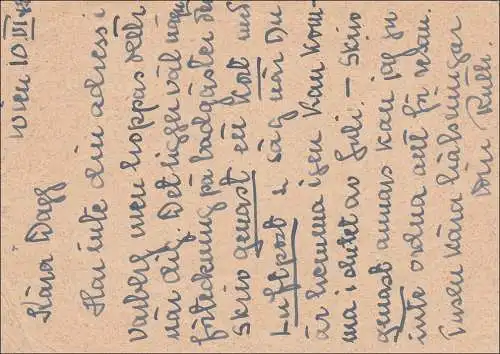 Wien 10 III
Kära Dagg
Har inte din adress i
Varberg men hoppas detta
når dig. Det ligger väl någon
förteckning på badgäster der
Skriv genast ett kort med
Luftpost & säg när Du
är hemma igen Kan kom-
ma i slutet av Juli. – Skriv
genast annars kan jag ju
inte ordna allt för resan.
Tusen kära hälsningar
Din